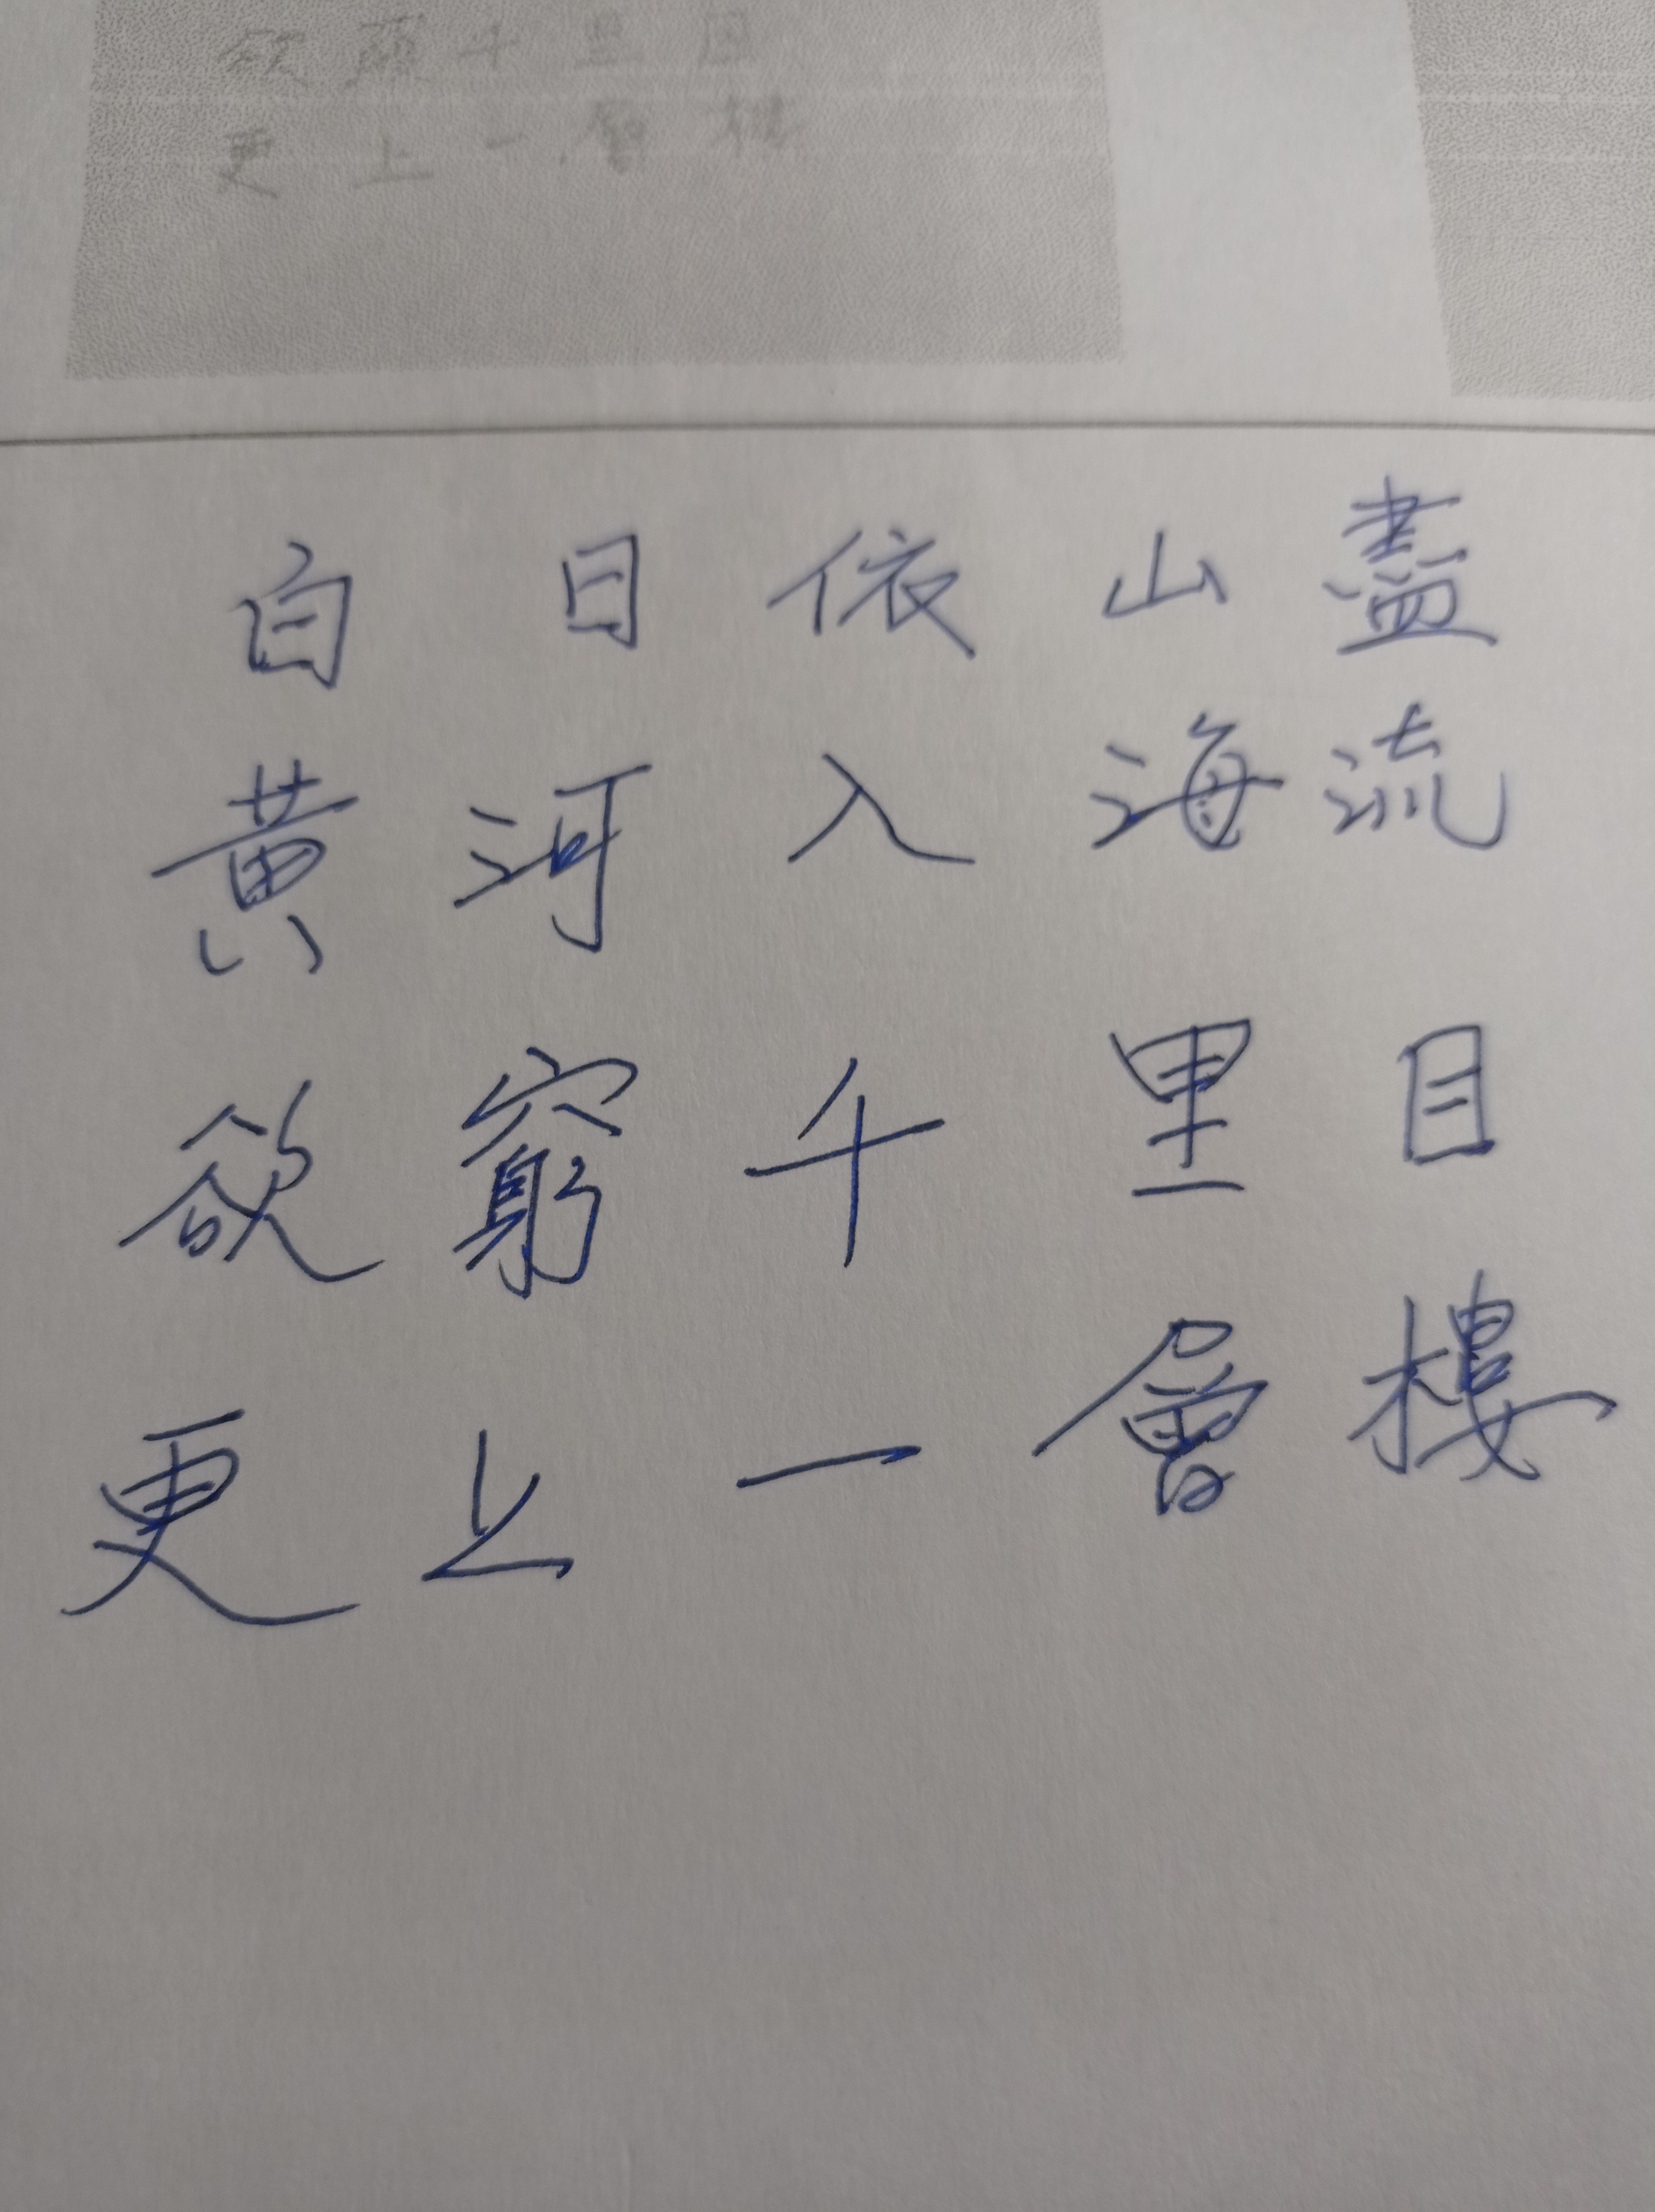 欲窮千里目
更上一層樓
白日依山盡
黃河入海流
欲窮千里目
更上一層樓